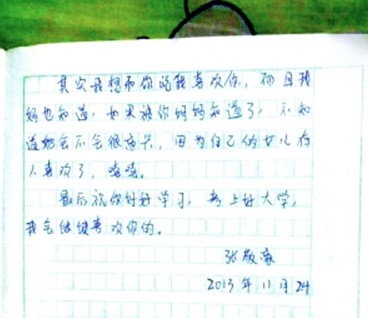 其实我想和你说我喜欢你，而且我
妈也知道，如果被你妈妈知道了，不知
道她会不会很高兴，因为自己的女儿有
人喜欢了，嘻嘻。
最后祝你好好学习，考上好大学，
我会继续喜欢你的。
张
2013年11月24